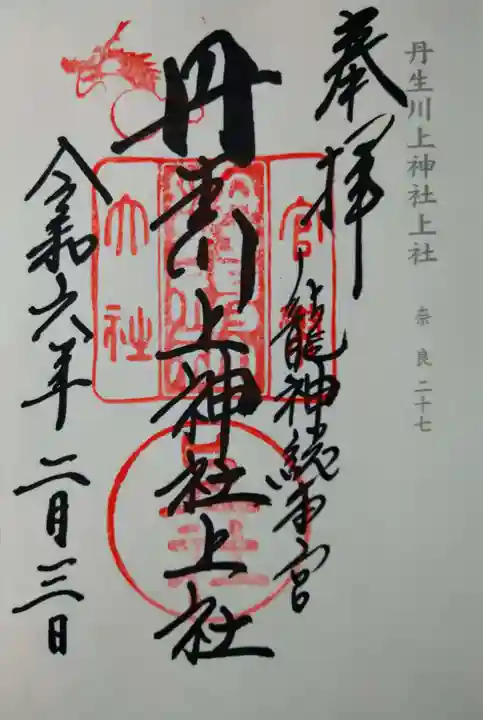 丹生川上神社上社
奈良二十七
奉拝
龍神総本宮
丹生川上神社上社
官
大社
令和六年二月三日